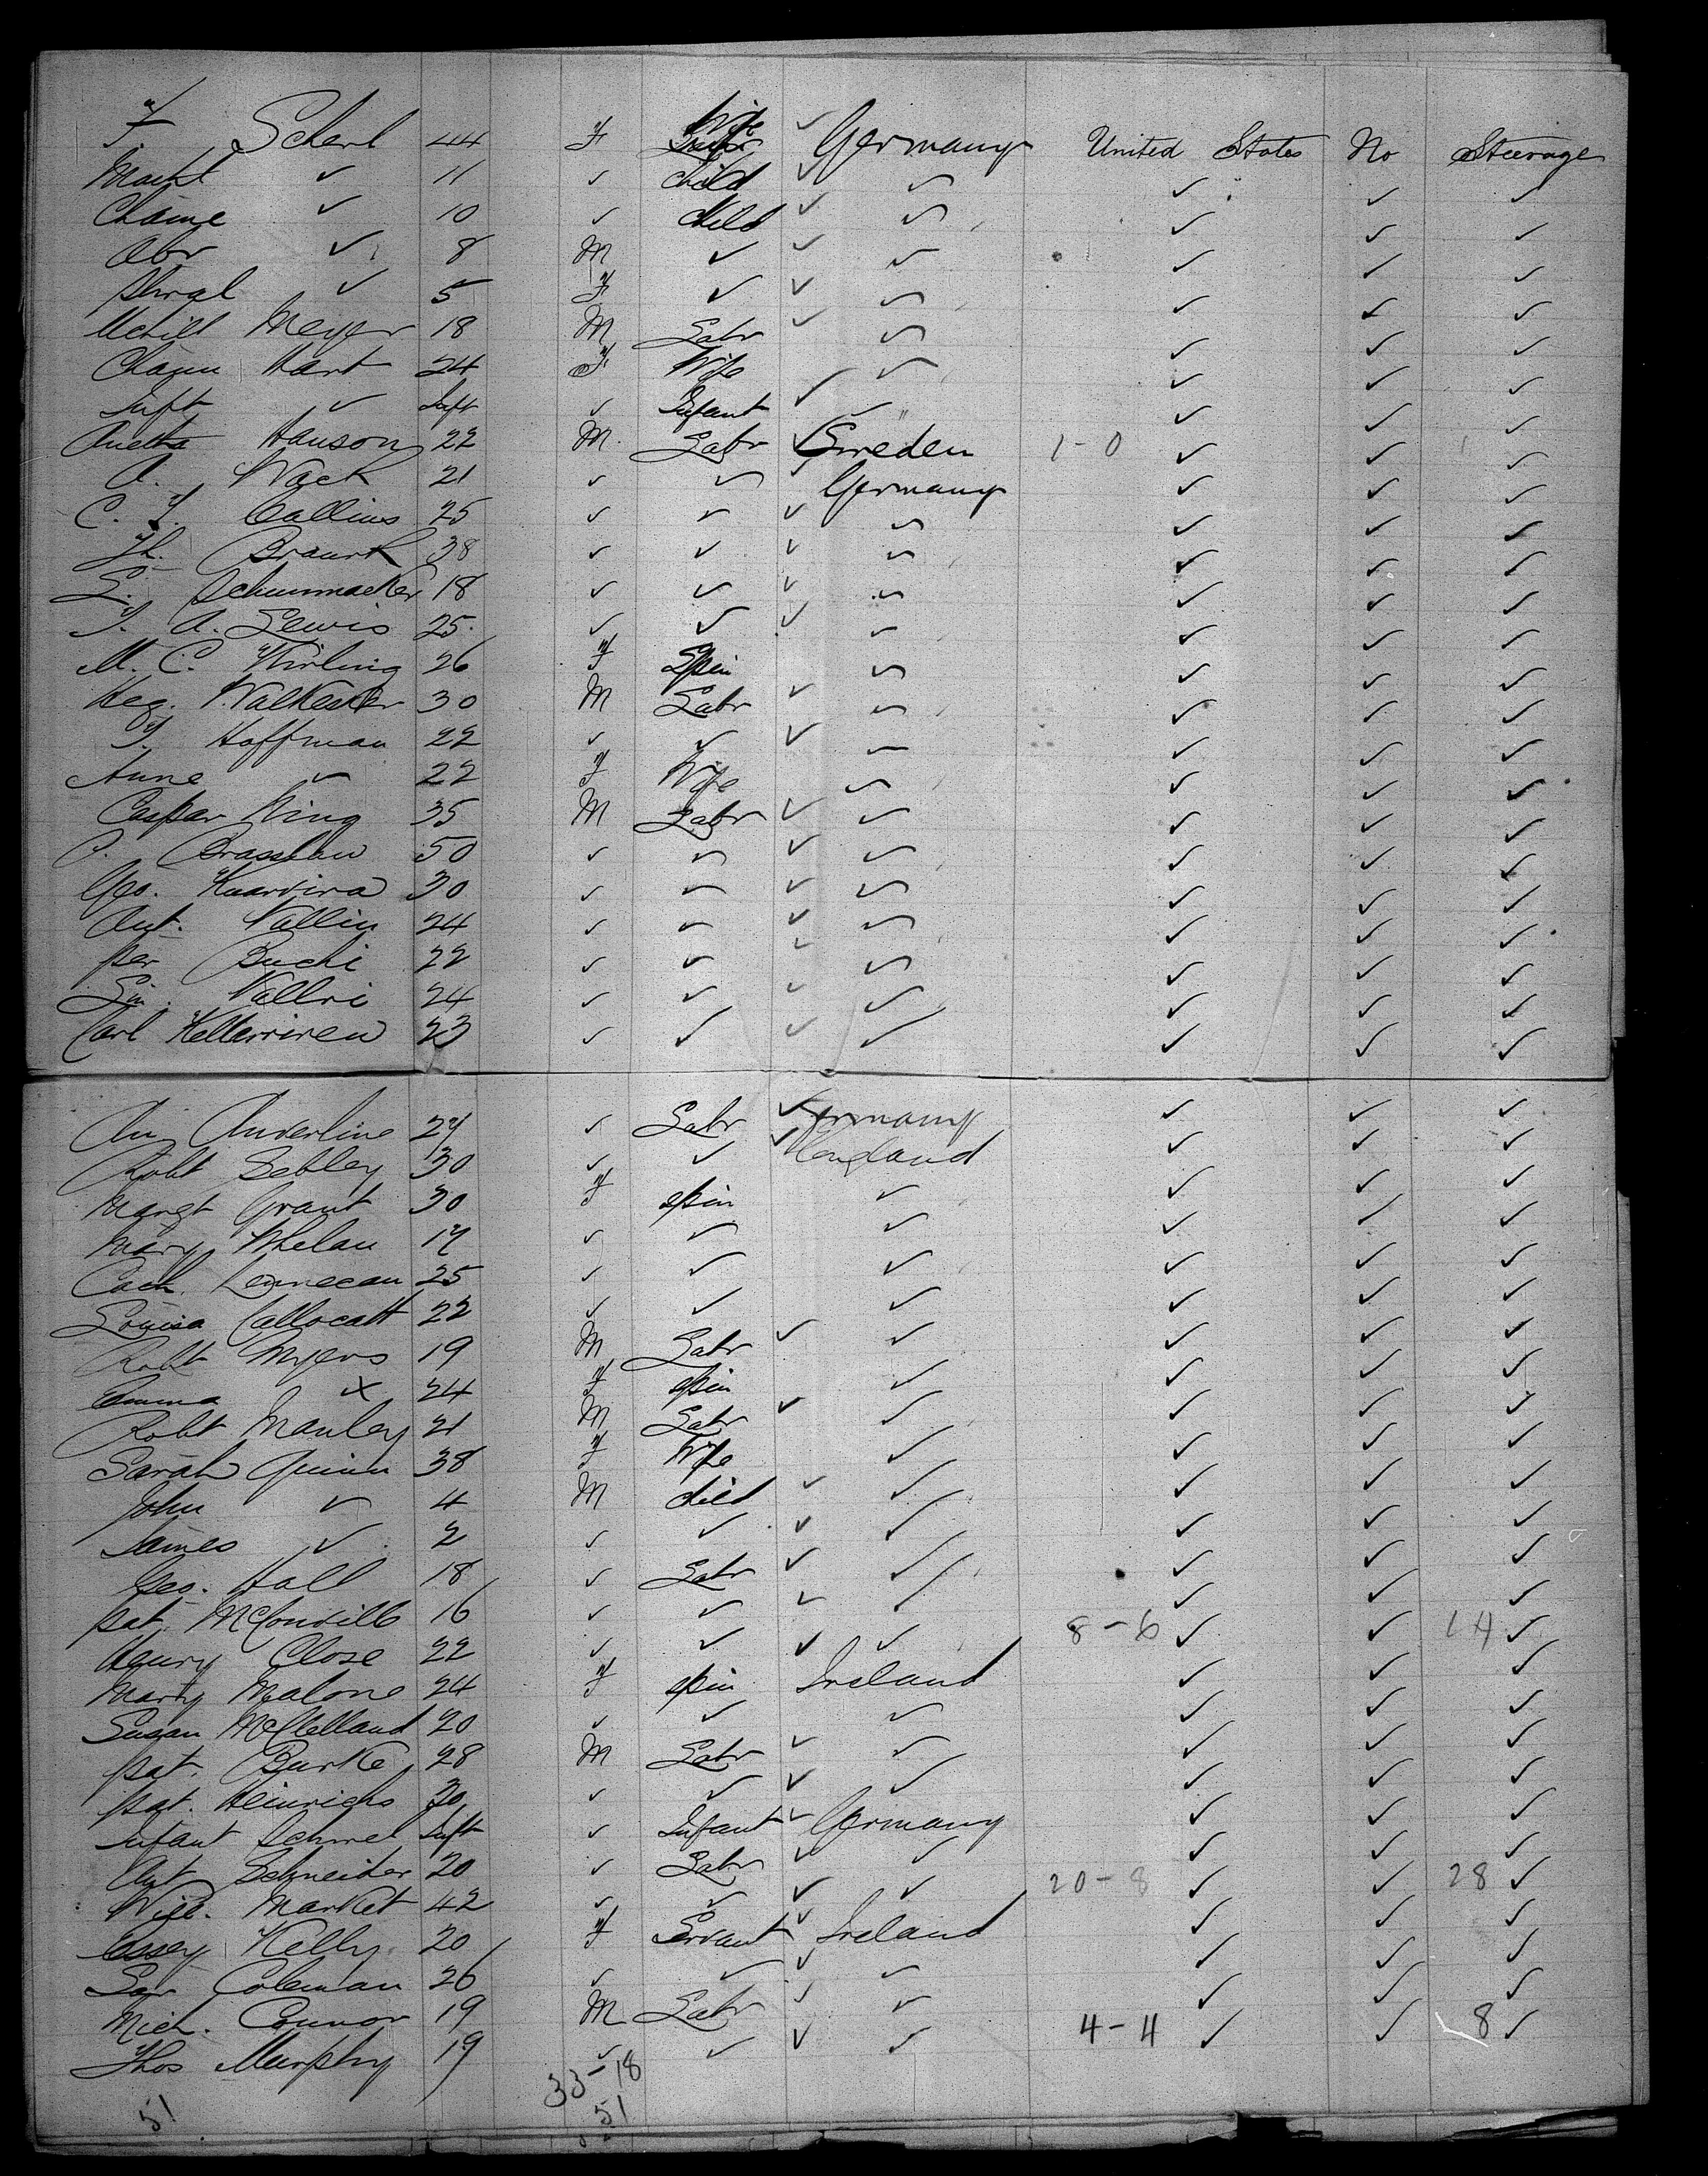 F Scherl 44 F Wife Germany United States No Steerage
✓ 11 ✓ child ✓ ✓ ✓ ✓ ✓
Chaime ✓ 10 ✓ child ✓ ✓ ✓ ✓ ✓
Abr ✓ 8 M ✓ ✓ ✓ ✓ ✓ ✓
✓ 5 F ✓ ✓ ✓ ✓ ✓ ✓
Meyer 18 M Labr ✓ ✓ ✓ ✓ ✓
Hart 24 F Wife ✓ ✓ ✓ ✓
Inft ✓ Inft ✓ Infant ✓ ✓ ✓ ✓ ✓
Hanson 22 M Labr ✓ Sweden 1-0 ✓ ✓ ✓
A. Wack 21 ✓ ✓ ✓ Germany ✓ ✓ ✓
C. F. Callius 25 ✓ ✓ ✓ ✓ ✓ ✓ ✓
Th. 38 ✓ ✓ ✓ ✓ ✓ ✓ ✓
S. Schummacker 18 ✓ ✓ ✓ ✓ ✓ ✓ ✓
J. A. Lewis 25 ✓ ✓ ✓ ✓ ✓ ✓ ✓
M. C. 26 F Spin ✓ ✓ ✓ ✓
30 M Labr ✓ ✓ ✓ ✓ ✓
J. Hoffman 22 ✓ ✓ ✓ ✓ ✓ ✓ ✓
Anne ✓ 22 F Wife ✓ ✓ ✓ ✓
Caspar King 35 M Labr ✓ ✓ ✓ ✓ ✓
50 ✓ ✓ ✓ ✓ ✓ ✓ ✓
Geo. 30 ✓ ✓ ✓ ✓ ✓ ✓ ✓
Ant. Vallin 24 ✓ ✓ ✓ ✓ ✓ ✓ ✓
Per Buchi 22 ✓ ✓ ✓ ✓ ✓ ✓ ✓
Vallri 24 ✓ ✓ ✓ ✓ ✓ ✓ ✓
Carl 23 ✓ ✓ ✓ ✓ ✓ ✓ ✓
An Anderline 24 ✓ Labr ✓ Germany ✓ ✓ ✓
Robt Sebley 30 ✓ ✓ ✓ England ✓ ✓ ✓
Margt Grant 30 F spin ✓ ✓ ✓ ✓
Mary Whelan 17 ✓ ✓ ✓ ✓ ✓ ✓
Cath. Lennecan 25 ✓ ✓ ✓ ✓ ✓ ✓
Louisa Callocatt 22 ✓ ✓ ✓ ✓ ✓ ✓
Robt Myers 19 M Labr ✓ ✓ ✓ ✓ ✓
Emma × 24 F spin ✓ ✓ ✓ ✓
Robt Manley 21 M Labr ✓ ✓ ✓ ✓ ✓
Sarah Quinn 38 F Wife ✓ ✓ ✓ ✓
John ✓ 4 M child ✓ ✓ ✓ ✓ ✓
James ✓ 2 ✓ ✓ ✓ ✓ ✓ ✓ ✓
Geo. Hall 18 ✓ Labr ✓ ✓ ✓ ✓ ✓
Pat. McConville 16 ✓ ✓ ✓ ✓ ✓ ✓ ✓
Henry Close 22 ✓ ✓ ✓ ✓ 8-6 ✓ ✓ 14 ✓
Mary Malone 24 F spin Ireland ✓ ✓ ✓
Susan McClelland 20 ✓ ✓ ✓ ✓ ✓ ✓
Pat. Burke 28 M Labr ✓ ✓ ✓ ✓ ✓
Pat. Heinrichs 30 ✓ ✓ ✓ ✓ ✓ ✓ ✓
Infant Inft ✓ Infant ✓ Germany ✓ ✓ ✓
Ant Schneider 20 ✓ Labr ✓ ✓ ✓ ✓ ✓
Will. Market 42 ✓ ✓ ✓ ✓ 20-8 ✓ ✓ 28 ✓
Essey Kelly 20 F Servant ✓ Ireland ✓ ✓ ✓
Coleman 26 ✓ ✓ ✓ ✓ ✓ ✓ ✓
Mich. Connor 19 M Labr ✓ ✓ ✓ ✓ ✓
Thos Murphy 19 ✓ ✓ ✓ ✓ 4-4 ✓ ✓ 8 ✓
33-18
51 51